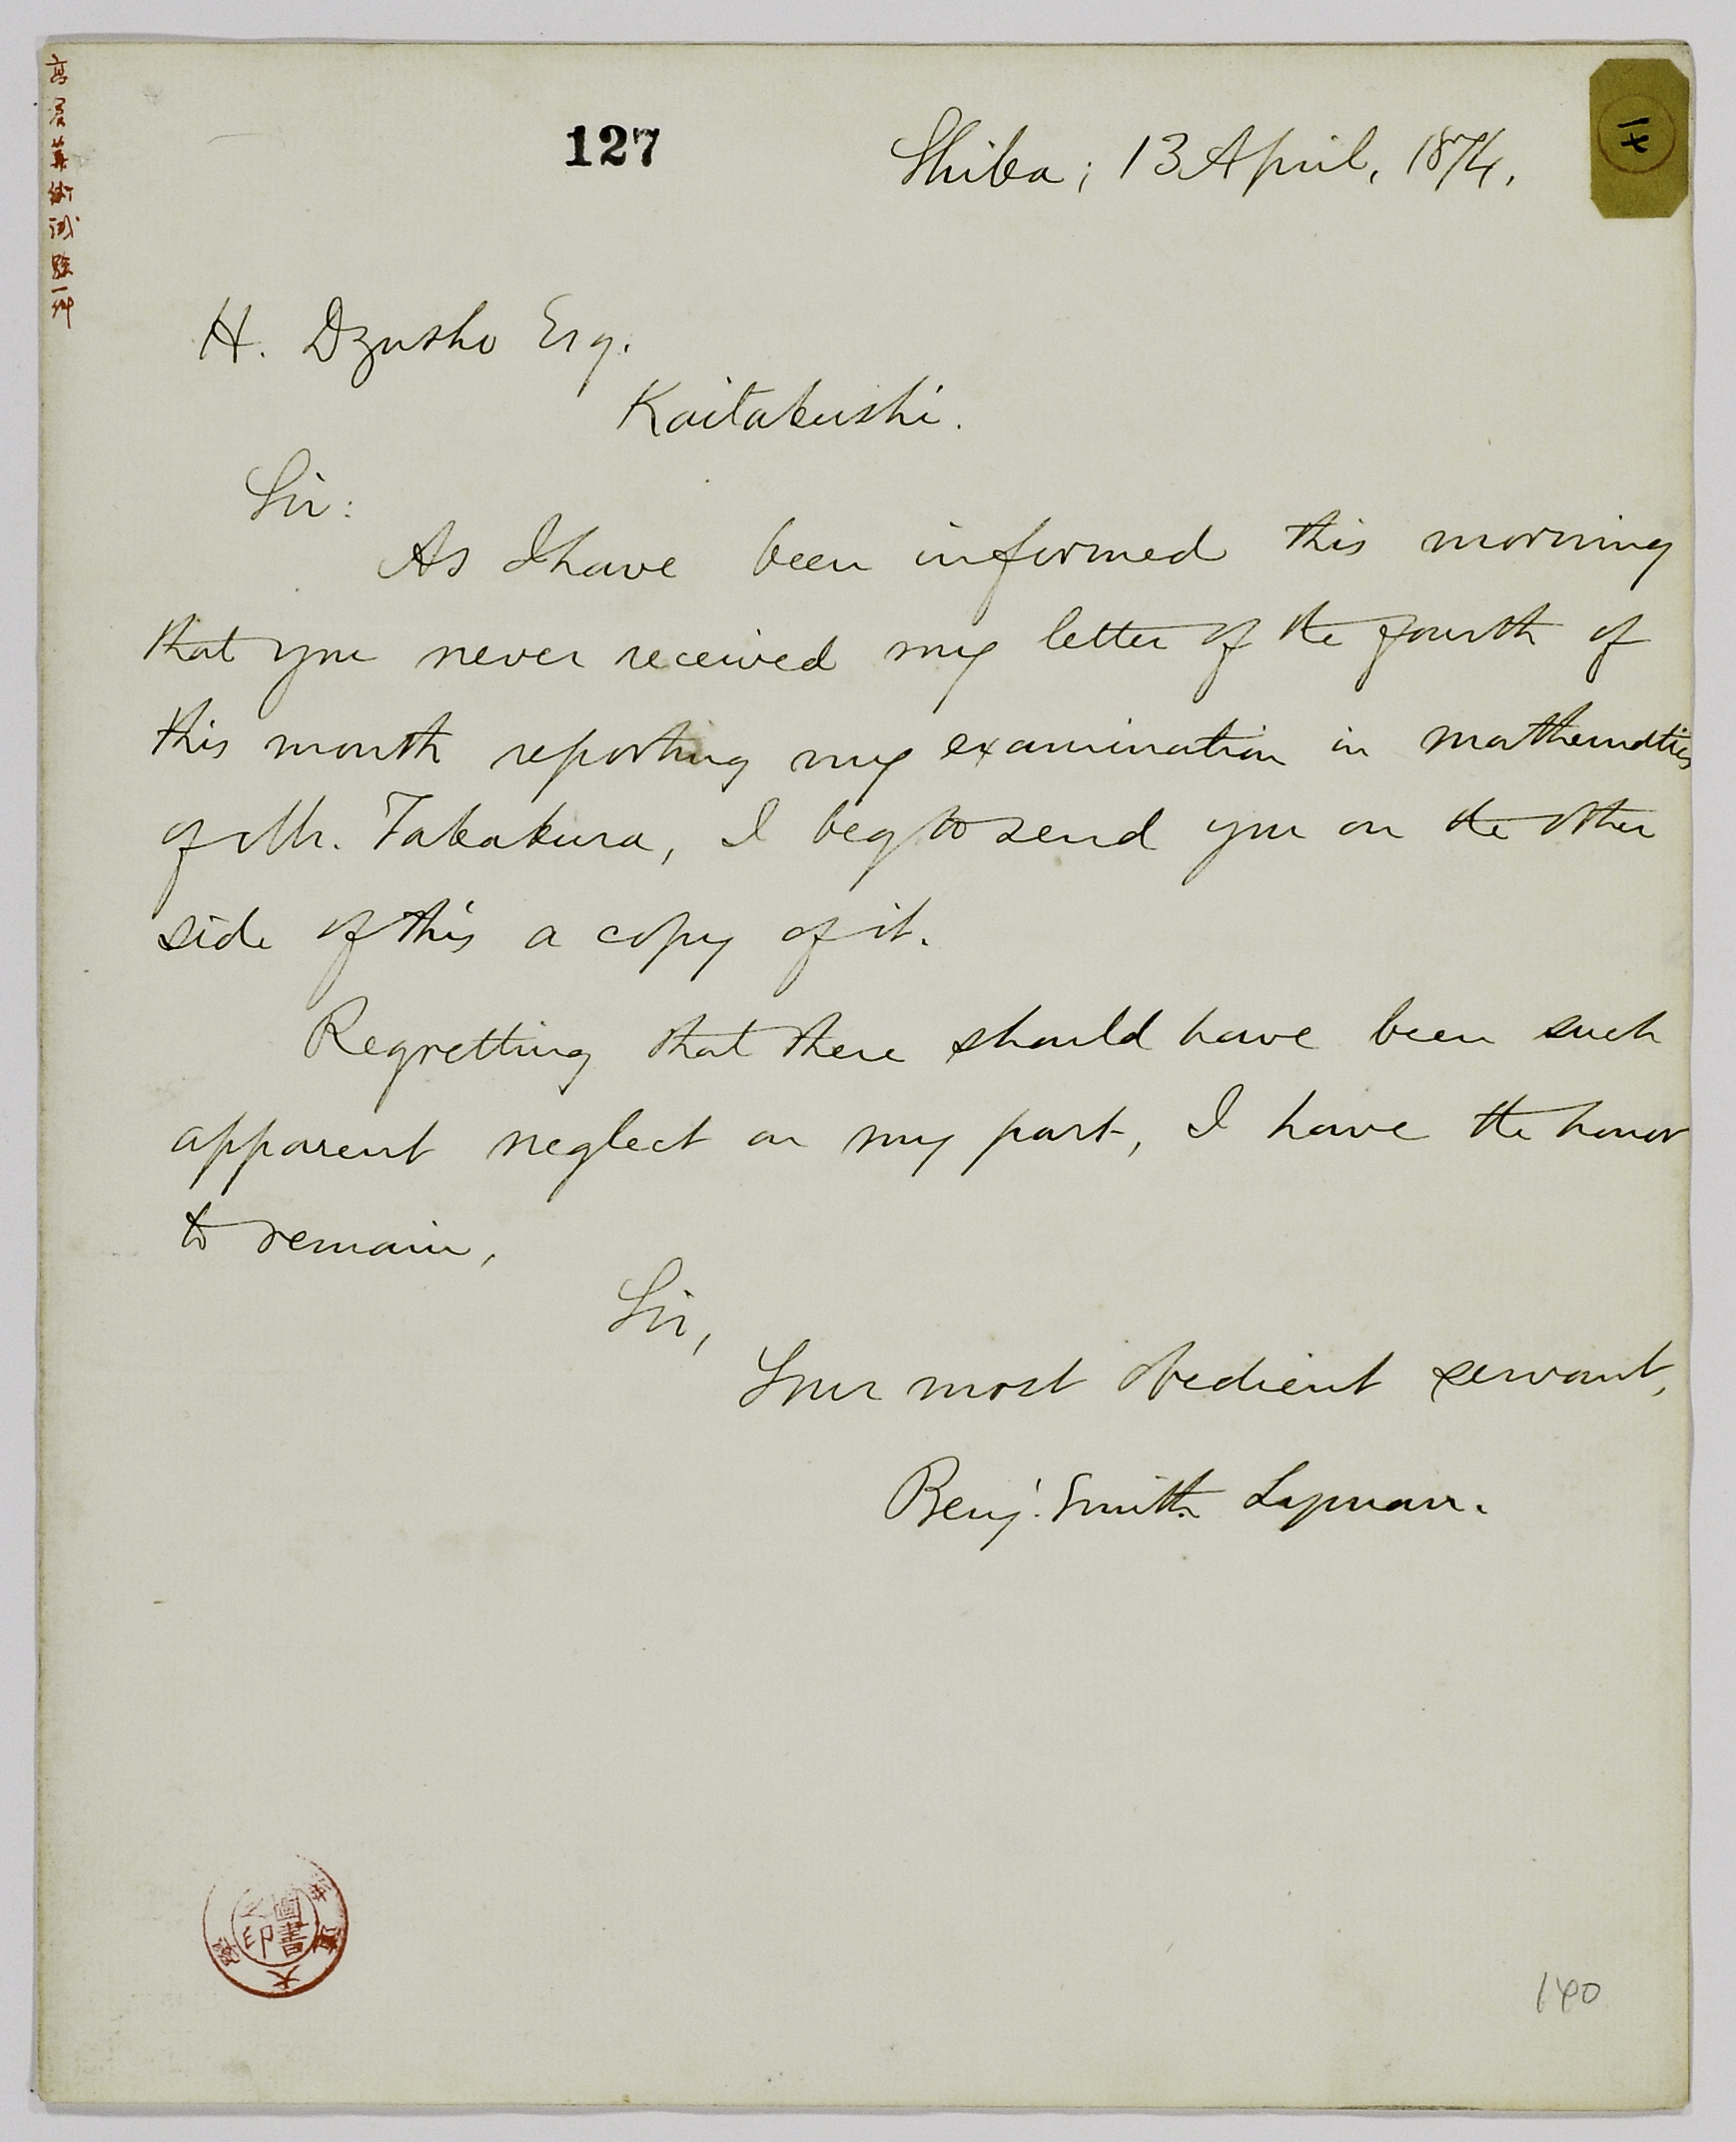 127
Shiba; 13 April, 1874.
H. Dzusho Esq.
Kaitakushi.
Sir:
As I have been informed this morning
that you never received my letter of the fourth of
this month reporting my examination in mathematics
of Mr. Takakura, I beg to send you on the other
side of this a copy of it.
Regretting that there should have been such
apparent neglect on my part, I have the honor
to remain,
Sir,
Your most obedient servant,
Benj. Smith Lyman.
140